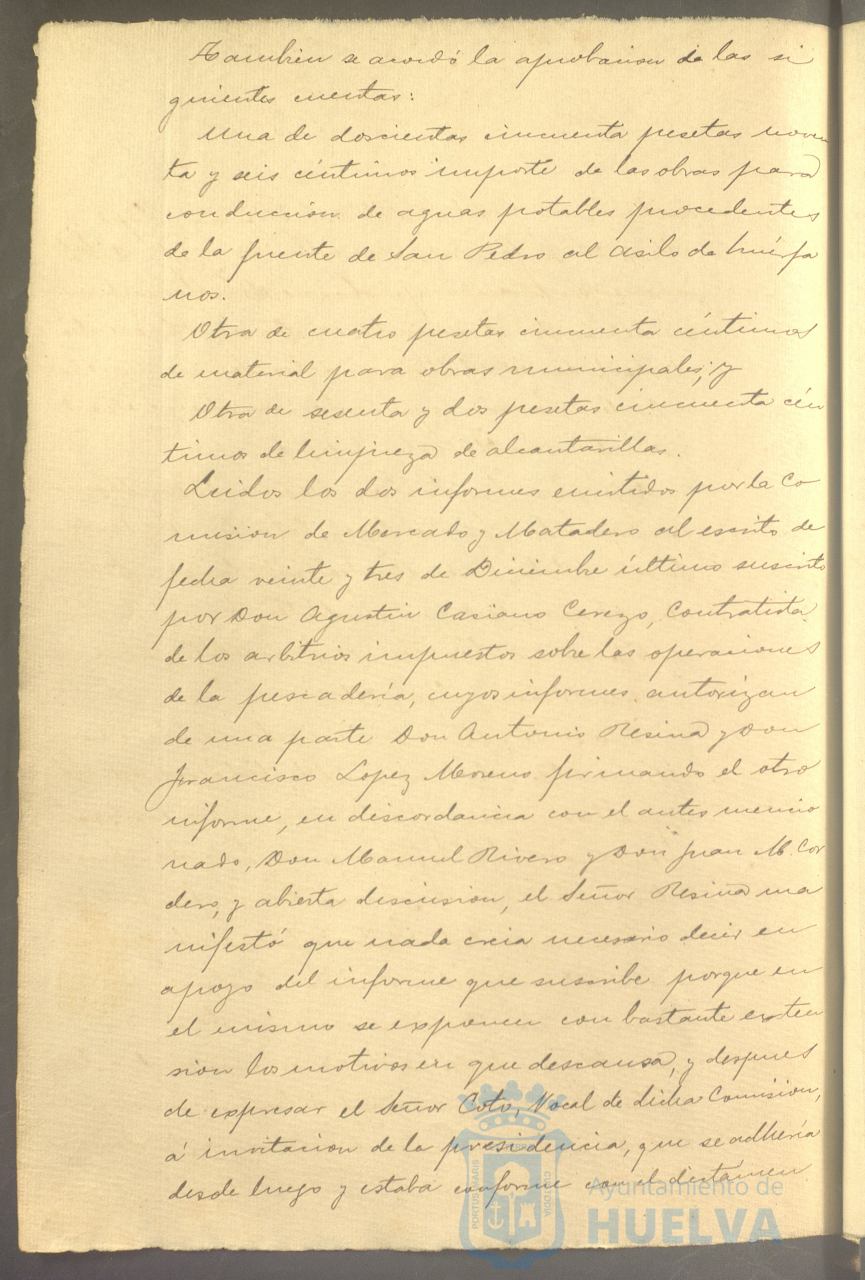 Tambien se acordó la aprobacion de las si
guientes cuentas:
Una de doscientas cincuenta pesetas noven
ta y seis céntimos importe de las obras para
conduccion de aguas potables procedentes
de la fuente de San Pedro al asilo de huérfa
nos.
Otra de cuatro pesetas cincuenta céntimos
de material para obras municipales; y
Otra de sesenta y dos pesetas cincuenta cén
timos de limpieza de alcantarillas.
Leidos los dos informes emitidos por la Co
mision de Mercado y Matadero al escrito de
fecha veinte y tres de Diciembre último suscrito
por Don Agustin Casiano Cerezo, Contratista
de los arbitrios impuestos sobre las operaciones
de la pescadería, cuyos informes autorizan
de una parte Don Antonio Resina y Don
Francisco Lopez Moreno firmando el otro
informe, en discordancia con el antes mencio
nado, Don Manuel Rivero y Don Juan M. Cor
dero, y abierta discusion, el Señor Resina ma
nifestó que nada creia necesario decir en
apoyo del informe que suscribe porque en
el mismo se exponen con bastante exten
sion los motivos en que descansa, y despues
de expresar el Señor Coto, Vocal de dicha Comision,
á invitacion de la presidencia, que se adheria
desde luego y estaba conforme con el dictámen
Ayuntamiento de
HUELVA
PORTUS MARIS
CUSTODIA